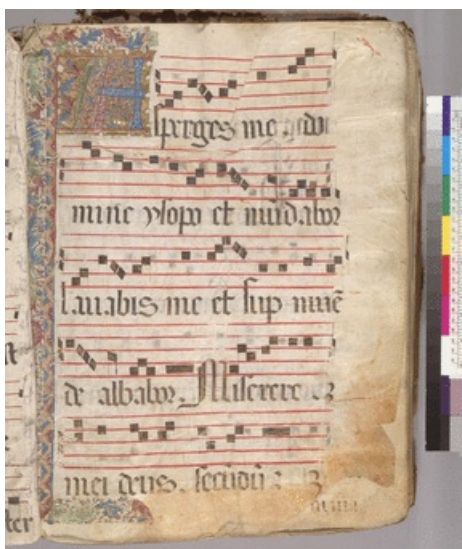 Asperges me domi
mine ysopo et mundabor
lauabis me et sup niuē
de albabor. Miserere
mei deus. secūdū
ter